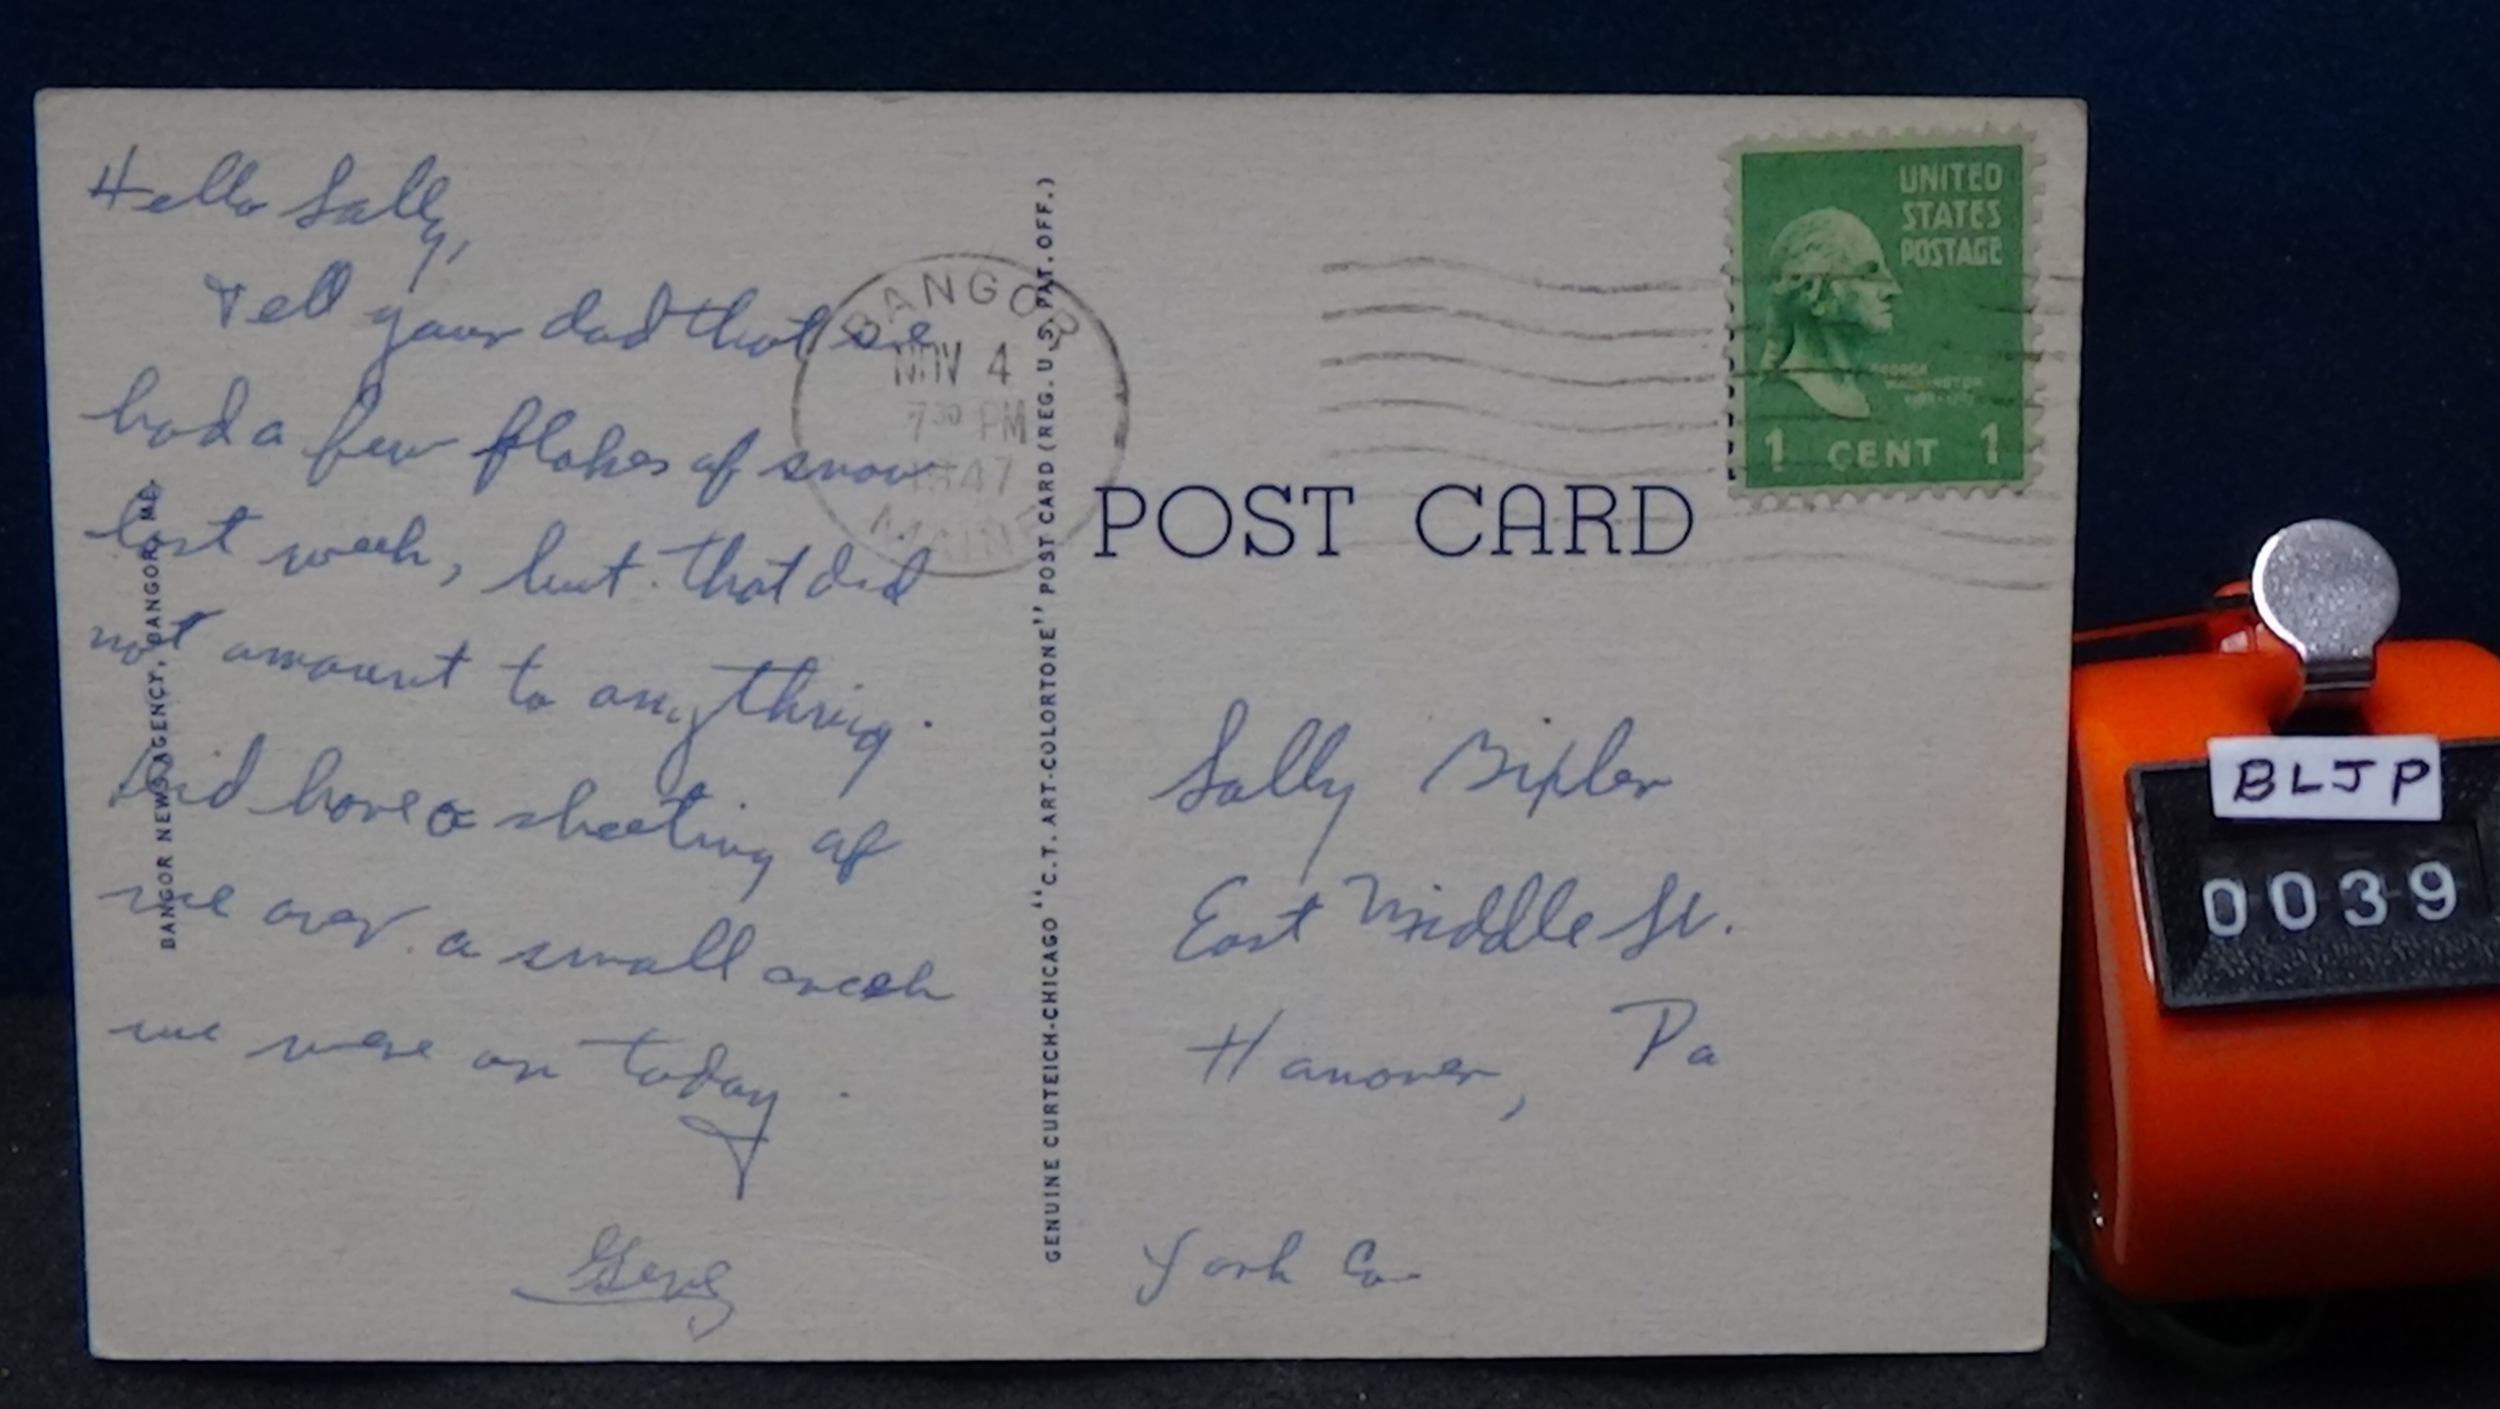 Hello Sally,
Tell your dad that we
had a few flakes of snow
last week, but that did
not amount to anything.
Did have a sheeting of
ice over a small creek
we were on today.
Gene
BANGOR NEWS AGENCY, BANGOR, ME.
BANGOR
NOV 4
7 30 PM
1947
MAINE
GENUINE CURTEICH-CHICAGO "C.T. ART-COLORTONE" POST CARD (REG. U.S. PAT. OFF.)
UNITED
STATES
POSTAGE
GEORGE
WASHINGTON
1 CENT 1
POST CARD
Sally
East Middle St.
Hanover, Pa
York Co.
BLJP
0039